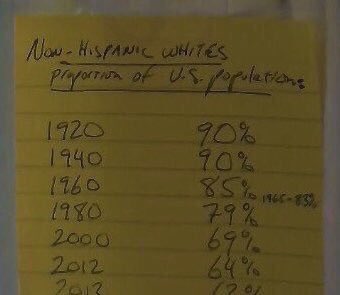 NON-HISPANIC WHITES
Proportion of U.S. populations
1920 90%
1940 90%
1960 85% 1965-83%
1980 79%
2000 69%
2012 64%
2013